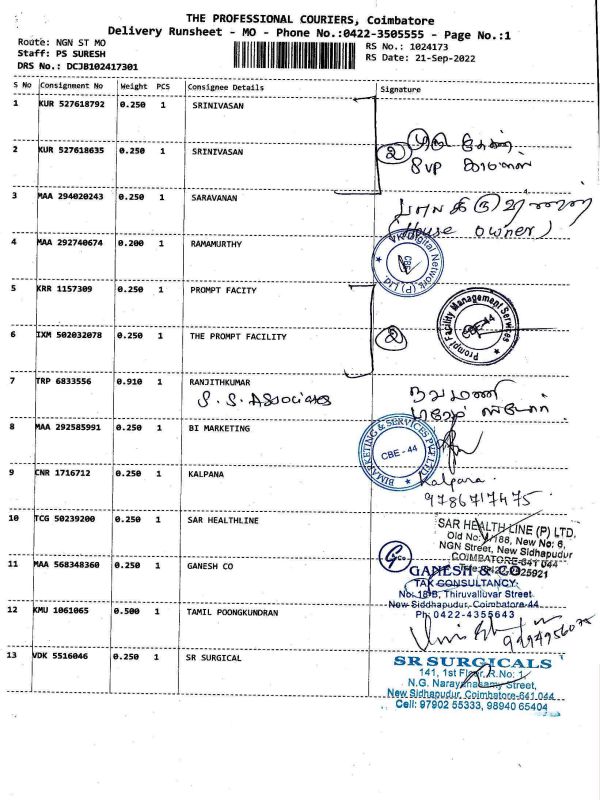 THE PROFESSIONAL COURIERS, Coimbatore
Delivery Runsheet - MO - Phone No.:0422-3505555 - Page No.:1
Route: NGN ST MO
Staff: PS SURESH
DRS No.: DCJB102417301
RS No.: 1024173
RS Date: 21-Sep-2022
S No Consignment No Weight PCS Consignee Details Signature
1 KUR 527618792 0.250 1 SRINIVASAN
2 KUR 527618635 0.250 1 SRINIVASAN
2
SVP
3 MAA 294020243 0.250 1 SARAVANAN
(House owner)
4 MAA 292740674 0.200 1 RAMAMURTHY
Digital Network (P) Ltd
CBE
5 KRR 1157309 0.250 1 PROMPT FACITY
Prompt Facility Management Services
CBE-44
6 IXM 502032078 0.250 1 THE PROMPT FACILITY
2
7 TRP 6833556 0.910 1 RANJITHKUMAR
S. S. Associates
8 MAA 292585991 0.250 1 BI MARKETING
BI MARKETING & SERVICES PVT LTD
CBE - 44
9 CNR 1716712 0.250 1 KALPANA
Kalpana
9786717475
10 TCG 50239200 0.250 1 SAR HEALTHLINE
SAR HEALTH LINE (P) LTD,
Old No: 4/188, New No: 6,
NGN Street, New Sidhapudur
COIMBATORE-641 044
11 MAA 568348360 0.250 1 GANESH CO
G Co
GANESH & CO
TAX CONSULTANCY
No: 18-B, Thiruvalluvar Street
New Siddhapudur, Coimbatore-44
Ph: 0422-4355643
12 KMU 1061065 0.500 1 TAMIL POONGKUNDRAN
13 VDK 5516046 0.250 1 SR SURGICAL
SR SURGICALS
141, 1st Floor, R.No: 1,
N.G. Narayanasamy Street,
New Sidhapudur, Coimbatore-641 044
Cell: 97902 55333, 98940 65404